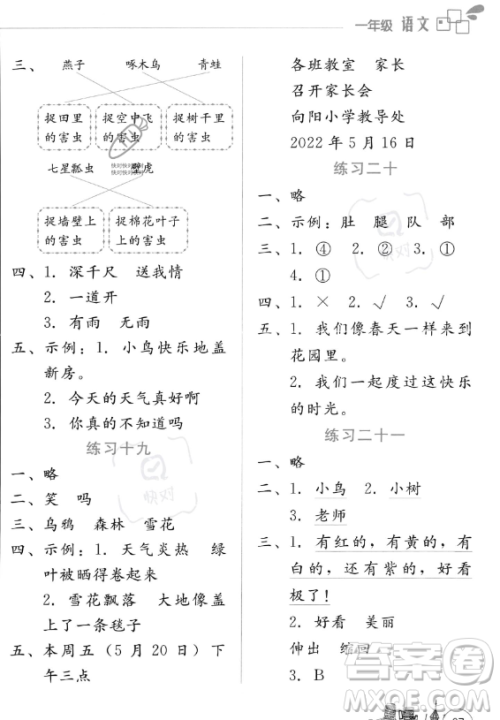 一年级 语文
三、 燕子 啄木鸟 青蛙
捉田里的害虫 捉空中飞的害虫 捉树干里的害虫
七星瓢虫 壁虎
捉墙壁上的害虫 捉棉花叶子上的害虫
四、1. 深千尺 送我情
2. 一道开
3. 有雨 无雨
五、示例：1. 小鸟快乐地盖
新房。
2. 今天的天气真好啊！
3. 你真的不知道吗？
练习十九
一、略
二、笑 吗
三、乌鸦 森林 雪花
四、示例：1. 天气炎热 绿
叶被晒得卷起来
2. 雪花飘落 大地像盖
上了一条毯子
五、本周五（5 月 20 日）下
午三点
各班教室 家长
召开家长会
向阳小学教导处
2022 年 5 月 16 日
练习二十
一、略
二、示例：肚 腿 队 部
三、1. ④ 2. ② 3. ①
4. ①
四、1. × 2. √ 3. √
五、1. 我们像春天一样来到
花园里。
2. 我们一起度过这快乐
的时光。
练习二十一
一、略
二、1. 小鸟 2. 小树
3. 老师
三、1. 有红的，有黄的，有
白的，还有紫的，好看
极了！
2. 好看 美丽
伸出 缩回
3. B
答案圈